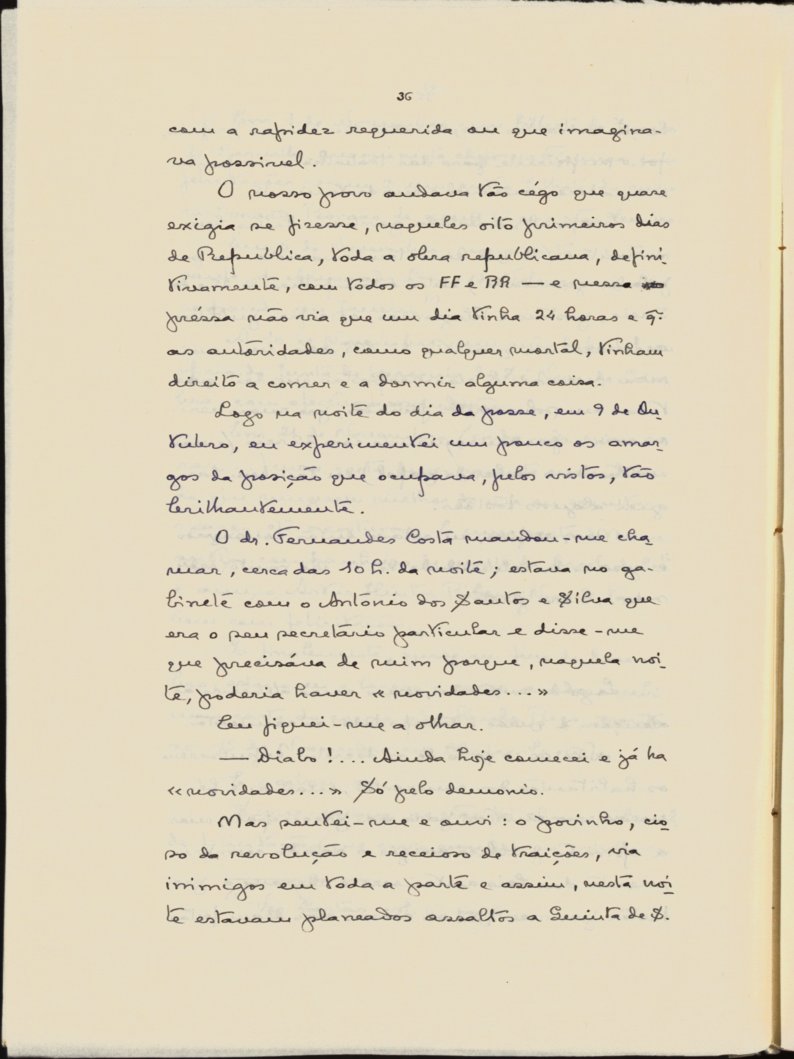 36
com a rapidez requerida ou que imagina-
va possivel.
O nosso povo andava tão cégo que quase
exigia se fizesse, naqueles oito primeiros dias
de Republica, toda a obra republicana, defini-
tivamente, com todos os FF e RR — e nessa
préssa não via que um dia tinha 24 horas e q.
as autoridades, como qualquer mortal, tinham
direito a comer e a dormir alguma coisa.
Logo na noite do dia da posse, em 9 de Ou-
tubro, eu experimentei um pouco os amar-
gos da posição que ocupava, pelos vistos, tão
brilhantemente.
O dr. Fernandes Costa mandou-me cha-
mar, cerca das 10 h. da noite; estava no ga-
binete com o António dos Santos e Silva que
era o seu secretário particular e disse-me
que precisáva de mim porque, naquela noi-
te, poderia haver « novidades... »
Eu fiquei-me a olhar.
— Diabo !... Ainda hoje comecei e já ha
« novidades... » Só pelo demonio.
Mas sentei-me e ouvi : o povinho, cio-
so da revolução e receioso de traições, via
inimigos em toda a parte e assim, nesta noi-
te estavam planeados assaltos a Quinta de S.